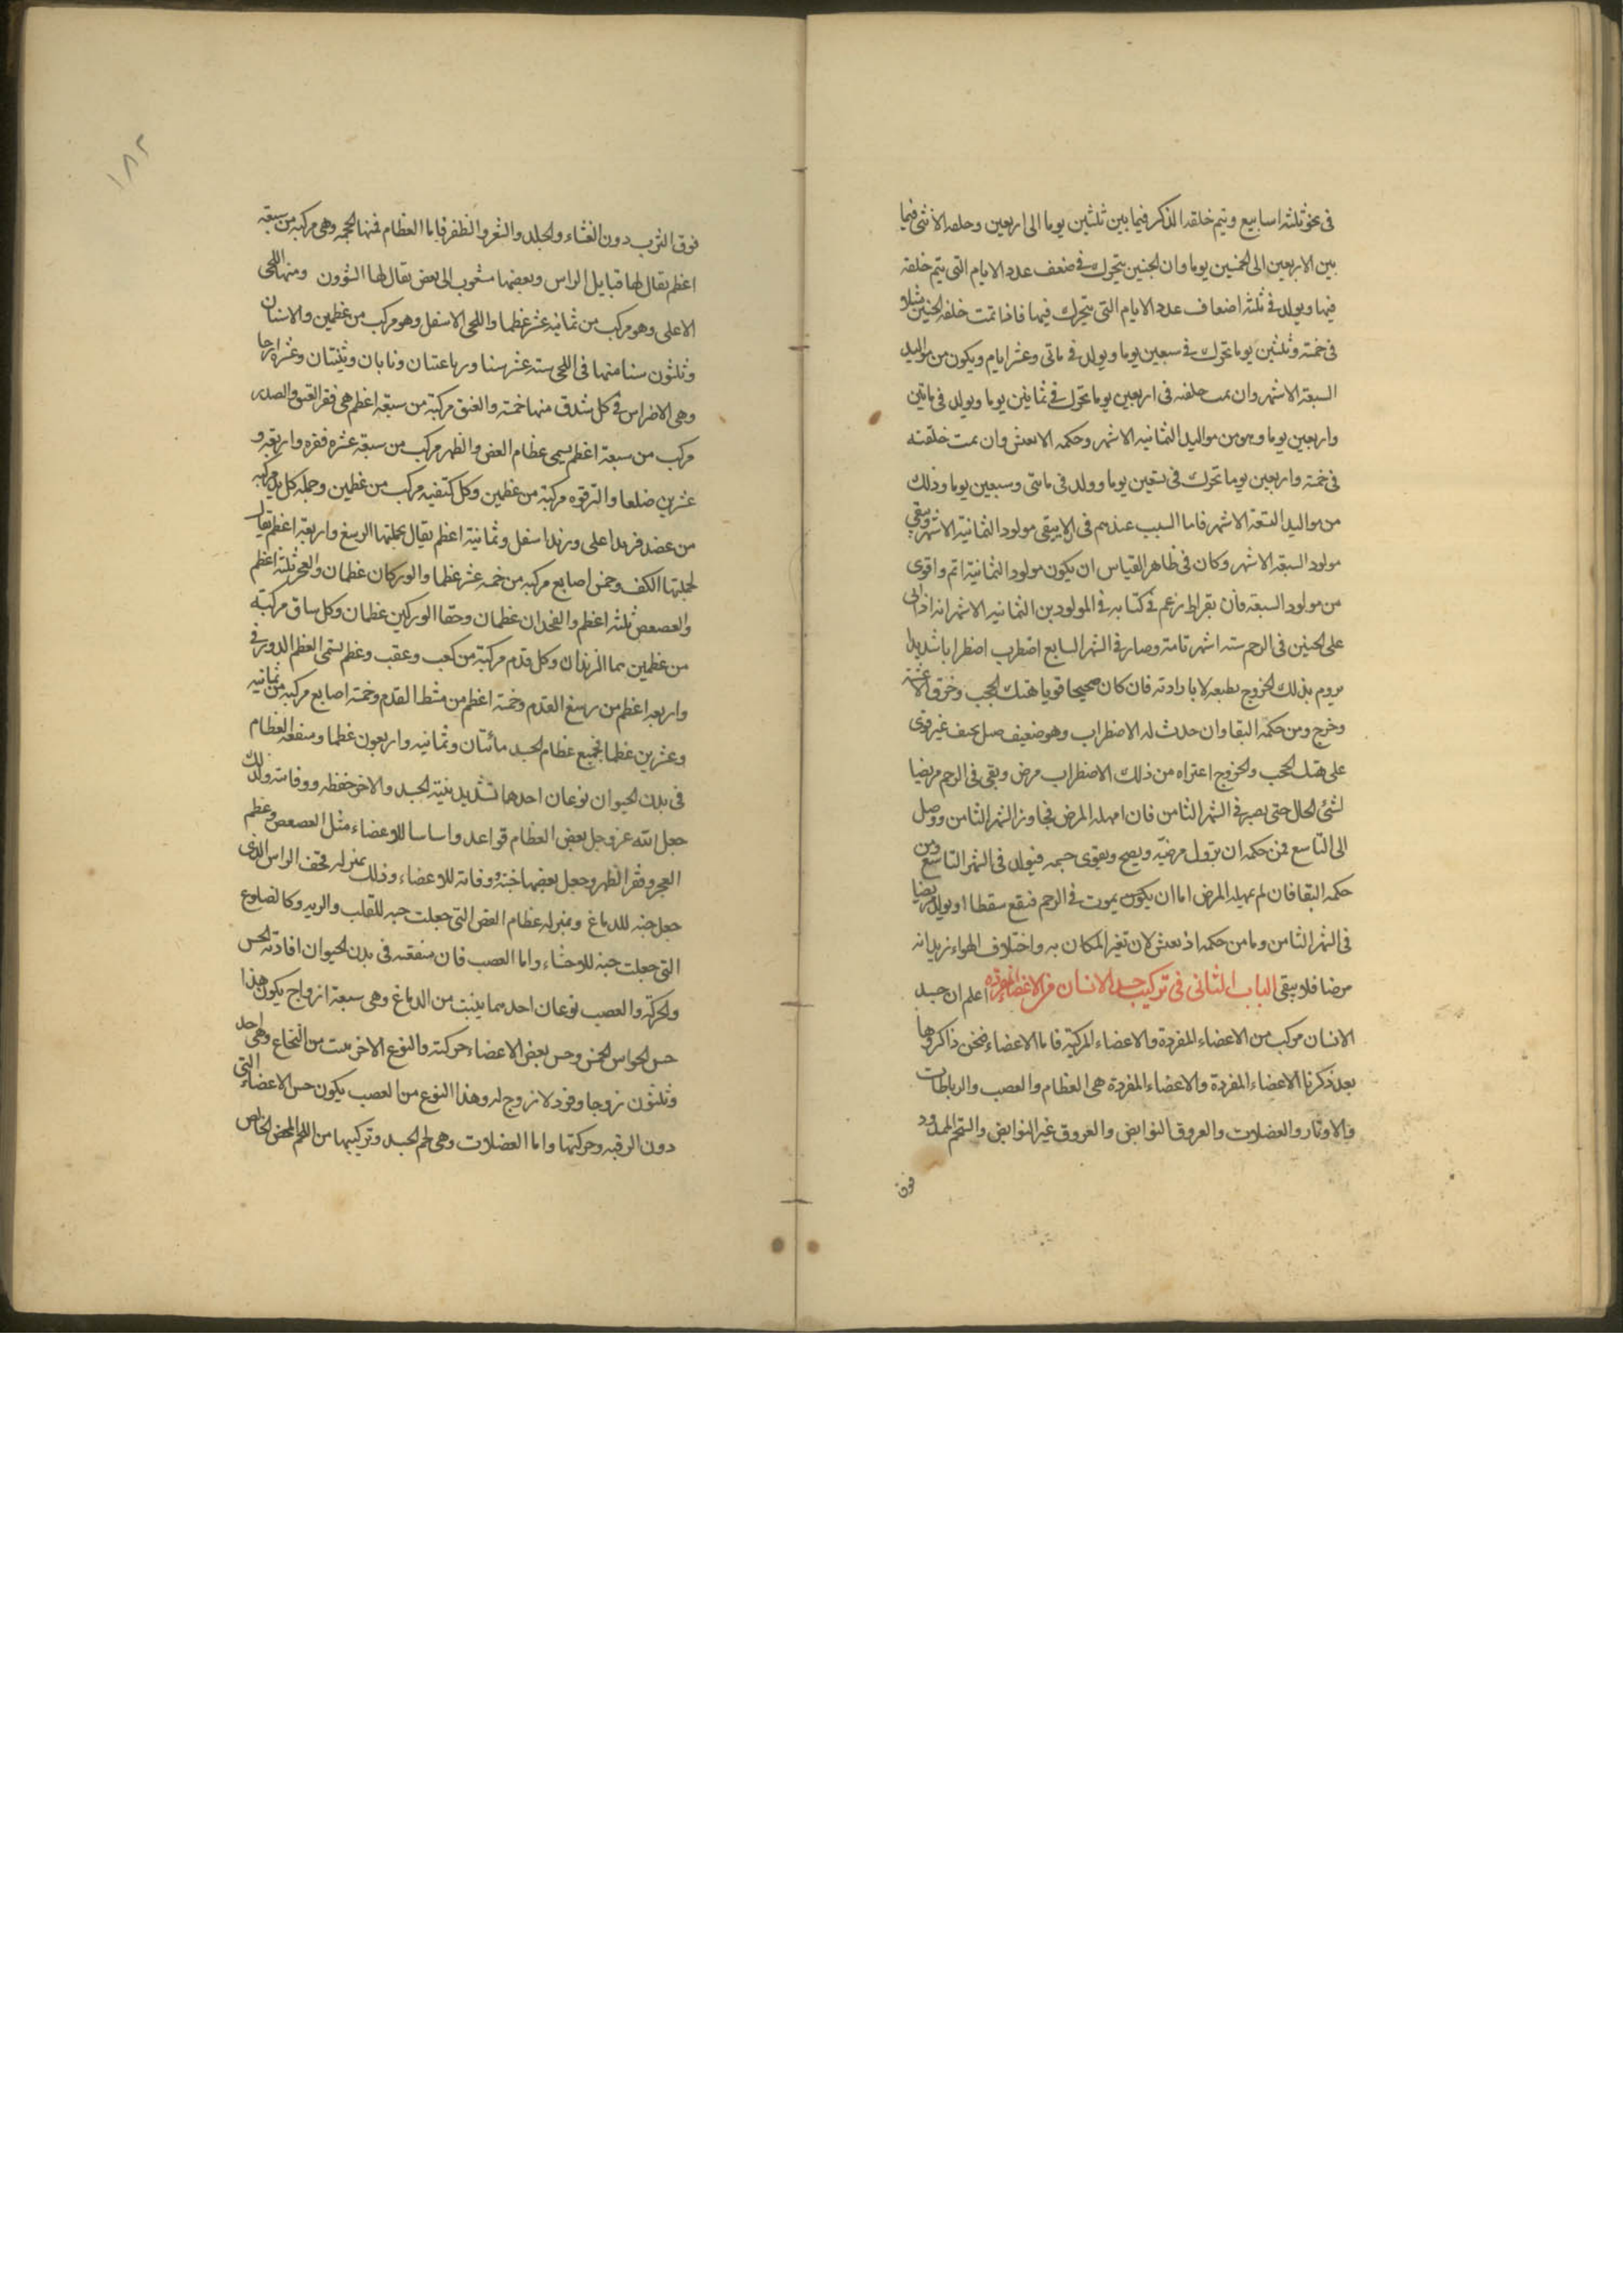 فى نحو ثلثة اسابيع ويتم خلقه الذكر فيما بين ثلثين يوما الى اربعين وخلقه الانثى فيما
بين الاربعين الى الخمسين يوما وان الجنين يتحرك فى ضعف عدد الايام التى يتم خلقه
فيها ويولد فى ثلثة اضعاف عدد الايام التى يتحرك فيها فاذا تمت خلقه الجنين مثلا
فى خمسة وثلثين يوما تحرك فى سبعين يوما ويولد فى ماتى وعشر ايام ويكون من مواليد
السبعة الاشهر وان تمت خلقته فى اربعين يوما تحرك فى ثمانين يوما ويولد فى ماتين
واربعين يوما وهو من مواليد الثمانيه الاشهر وحكمه الا يعش وان تمت خلقته
فى خمسة واربعين يوما تحرك فى تسعين يوما وولد فى ماتى وسبعين يوما وذلك
من مواليد التسعة الاشهر فاما السبب عندهم فى الا يبقى مولود الثمانية الاشهر ويبقى
مولود السبعة الاشهر وكان فى ظاهر القياس ان يكون مولود الثمانية اتم واقوى
من مولود السبعة فان بقراط زعم فى كتابه فى المولودين الثمانيه الاشهر انه اذا اتى
على الجنين فى الرحم ستة اشهر تامة وصار فى الشهر السابع اضطرب اضطرابا شديدا
يروم بذلك الخروج بطبعه لا بارادته فان كان صحيحا قويا هتك الحجب وخرق الاغشية
وخرج ومن حكمه البقا وان حدث له الاضطراب وهو ضعيف غير قوى
على هتك الحجب والخروج اعتراه من ذلك الاضطراب مرض وبقى فى الرحم مريضا
لشئ الحال حتى يصير فى الشهر الثامن فان امهله المرض تجاوز الشهر الثامن ووصل
الى التاسع فمن حكمه ان يزول مرضه ويصح ويقوى جسمه فيولد فى الشهر التاسع ومن
حكمه البقا فان لم يمهله المرض اما ان يكون يموت فى الرحم فيقع سقطا او يولد مريضا
فى الشهر الثامن وما من حكمه اذ يعش لان تغير المكان به واختلاف الهواء يزيدانه
مرضا فلا يبقى الباب الثانى فى تركيب جسد الانسان من الاعضاء المفرده اعلم ان جسد
الانسان مركب من الاعضاء المفردة والاعضاء المركبة فاما الاعضاء فنحن ذاكروها
بعد ذكرنا الاعضاء المفردة والاعضاء المفردة هى العظام والعصب والرباطات
والاوتار والعضلات والعروق النوابض والعروق غير النوابض والشحم الممدود
فوق
١٨٢
فوق الثرب دون الغشاء والجلد والشعر والظفر فاما العظام فمنها الجمجمه وهى مركبه من سبعة
اعظم يقال لها قبايل الراس وبعضها مشعوب الى بعض يقال لها الشؤون ومنها اللحى
الاعلى وهو مركب من ثمانيه عشر عظما واللحى الاسفل وهو مركب من عظمين والاسنان
وثلثون سنا منها فى اللحى ستة عشر سنا ورباعتيان ونابان وثنيتان وعشرة ارحا
وهى الاضراس فى كل شدق منها خمسة والعنق مركبة من سبعة اعظم هى فقر العنق والصدر
مركب من سبعة اعظم يسمى عظام القص والظهر مركب من سبعة عشره فقره واربعه و
عشرين ضلعا والترقوه مركبة من عظمين وكل كتفيه مركب من عظمين وجمله كل يد مركبه
من عضد وزند اعلى وزند اسفل وثمانية اعظم يقال بجملتها الرسغ واربعة اعظم يقال
لجملتها الكف وخمس اصابع مركبه من خمسة عشر عظما والوركان عظمان والعجز ثلثة اعظم
والعصعص ثلثة اعظم والفخدان عظمان وحقا الوركين عظمان وكل ساق مركبة
من عظمين هما الزندان وكل قدم مركبة من كعب وعقب وعظم يسمى العظم الدورقى
واربعة اعظم من رسغ القدم وخمسة اعظم من مشط القدم وخمسة اصابع مركبه من ثمانيه
وعشرين عظما فجميع عظام الجسد مائتان وثمانيه واربعون عظما ومنفعة العظام
فى بدن الحيوان نوعان احدها تشديد بنية الجسد والاخر حفظه ووقاته ولذلك
جعل الله عز وجل بعض العظام قواعد واساسا للاعضاء مثل العصعص وعظم
العجز وفقر الظهر وجعل بعضها جنة ووقاته للاعضاء وذلك بمنزله قحف الراس الذى
جعل جنه للدماغ وبمنزله عظام القص التى جعلت جنه للقلب والريه وكالضلوع
التى جعلت جنه للاحشاء واما العصب فان منفعته فى بدن الحيوان افادته الحس
والحركة والعصب نوعان احدهما ينبت من الدماغ وهى سبعة ازواج يكون هذا
حس الحواس الخمس وحس بعض الاعضاء حركته والنوع الاخر ينبت من النخاع وهى احد
وثلثون زوجا وفرد لا زوج له وهذا النوع من العصب يكون حس الاعضاء التى
دون الرقبه وحركتها واما العضلات وهى لحم الجسد وتركيبها من اللحم المحض الخالص